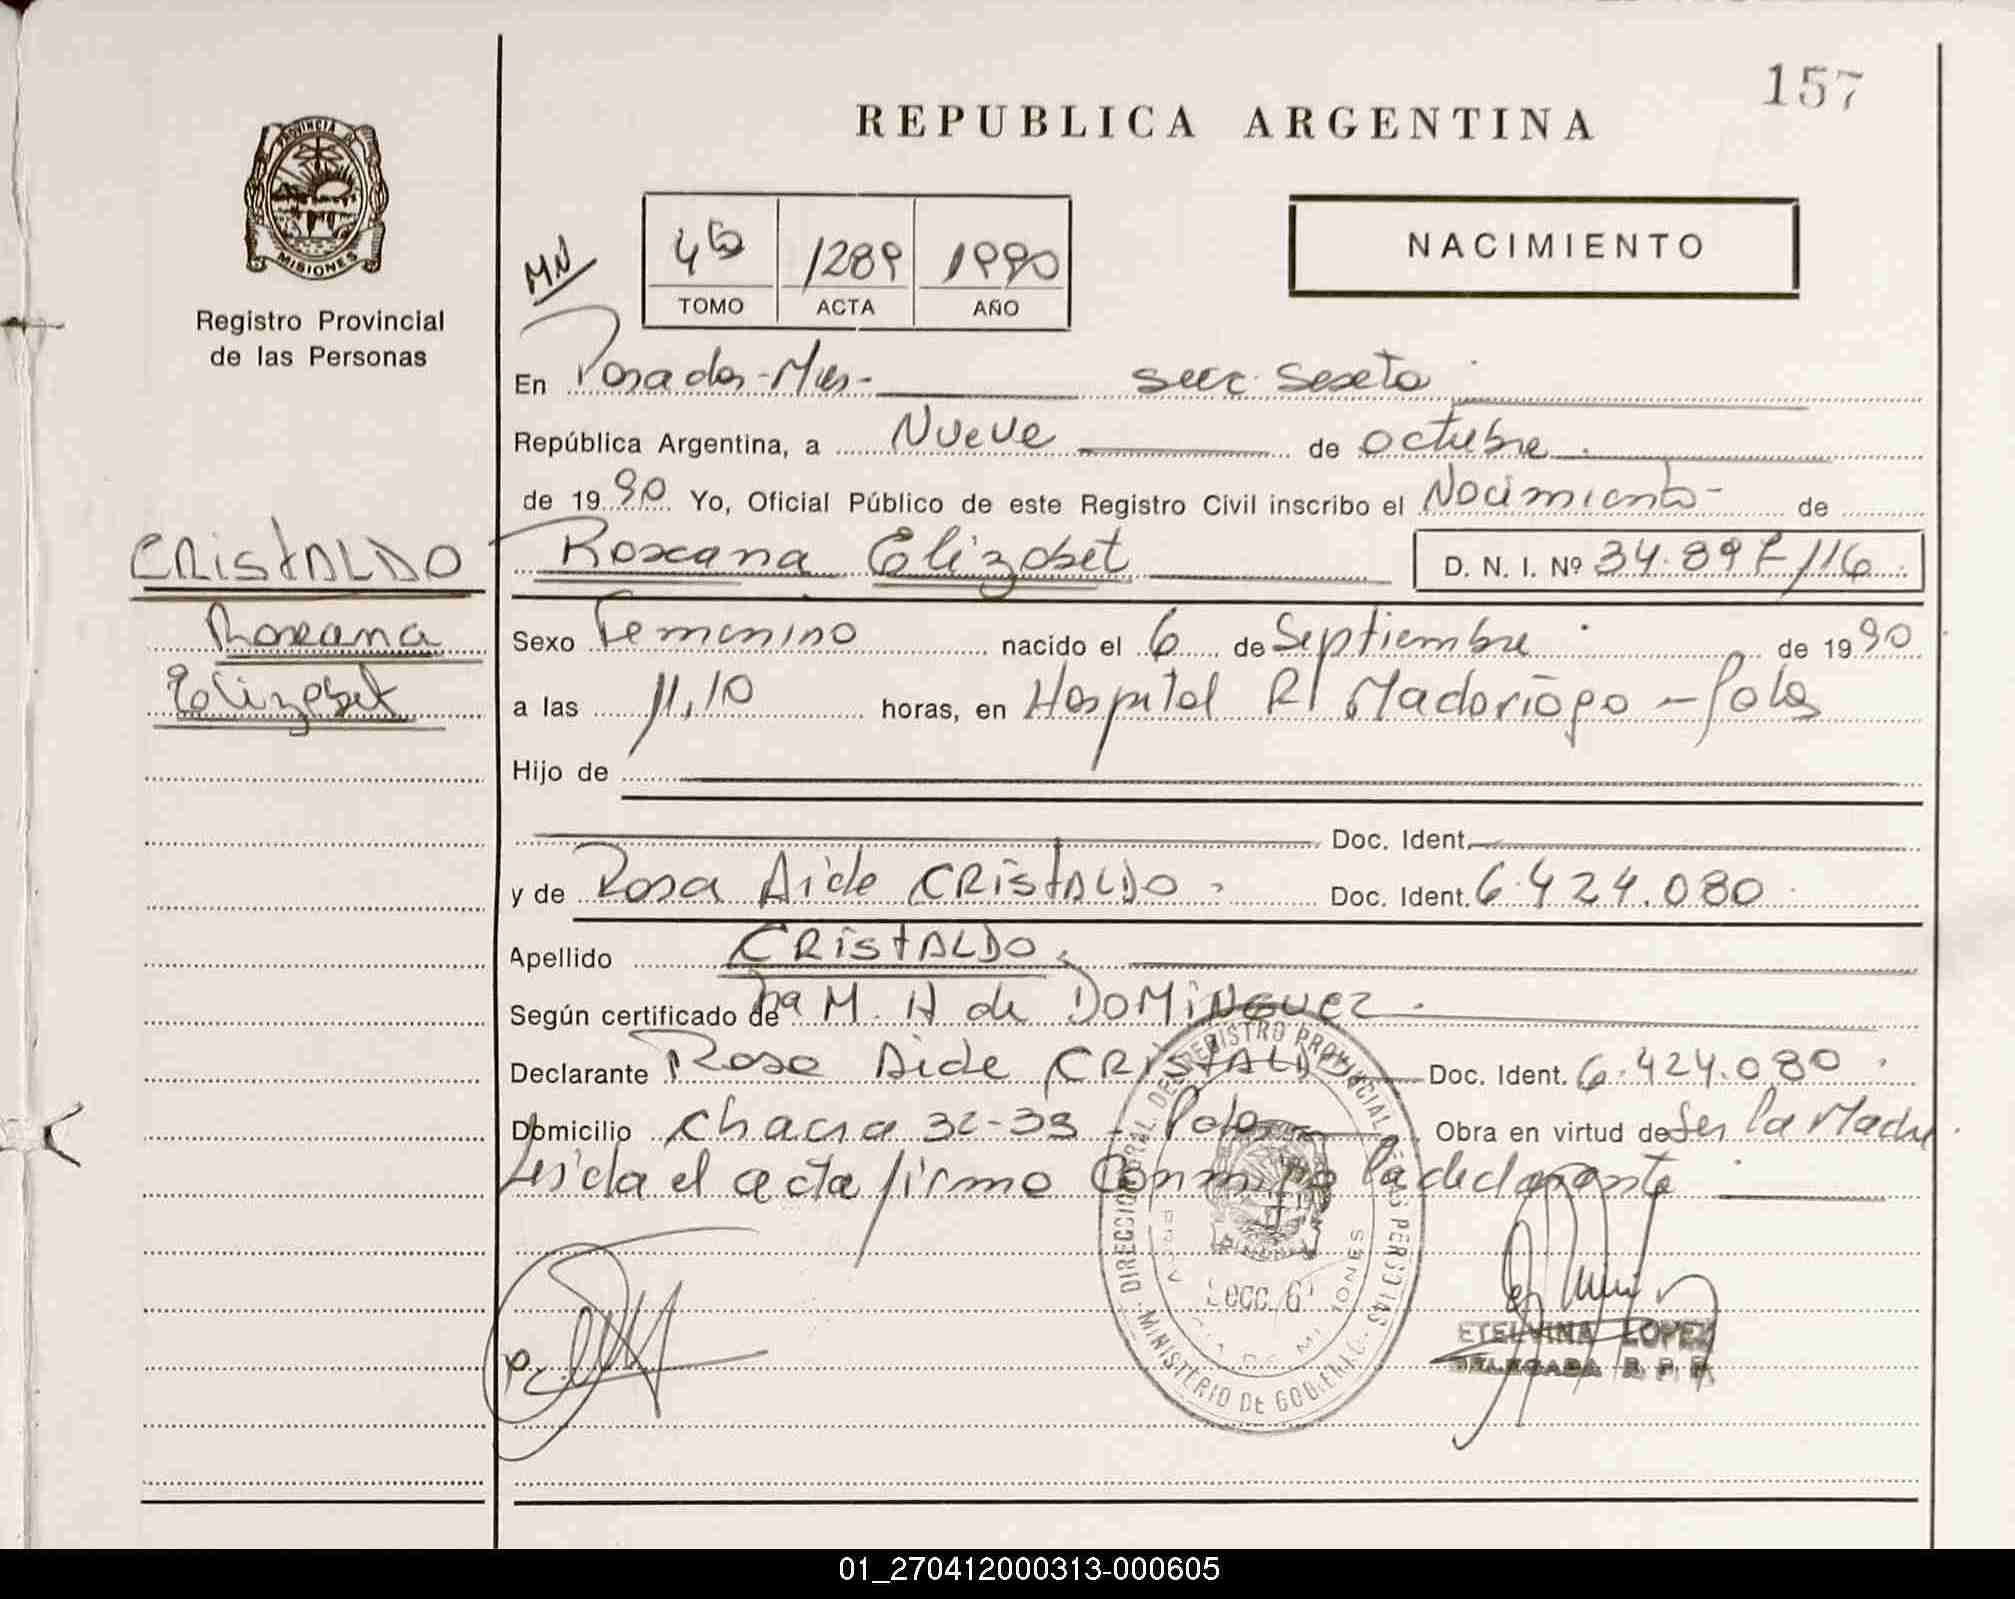 157
REPUBLICA ARGENTINA
PROVINCIA DE
MISIONES
Registro Provincial
de las Personas
MN
4º 1289 1990
TOMO ACTA AÑO
NACIMIENTO
En Posadas-Mnes- secc. Sexta
República Argentina, a Nueve de octubre
de 1990 Yo, Oficial Público de este Registro Civil inscribo el Nacimiento- de
CRISTALDO
Roxana
Elizabet
Roxana Elizabet D. N. I. Nº 34.897.116
Sexo Femenino nacido el 6 de Septiembre de 1990
a las 11,10 horas, en Hospital R Madariaga - Pdas
Hijo de
Doc. Ident.
y de Rosa Aide CRISTALDO Doc. Ident. 6.424.080
Apellido CRISTALDO
Según certificado de Dra M. H de DOMINGUEZ
Declarante Rosa Aide CRISTALDO Doc. Ident. 6.424.080
Domicilio Chacra 32-33 - Pdas Obra en virtud de Ser la Madre
Leida el acta firma conmigo la declarante
DIRECCION GRAL. DEL REGISTRO PROVINCIAL DE LAS PERSONAS
MINISTERIO DE GOBIERNO
Secc. 6ª
ETELVINA LOPEZ
DELEGADA R. P. P.
01_270412000313-000605